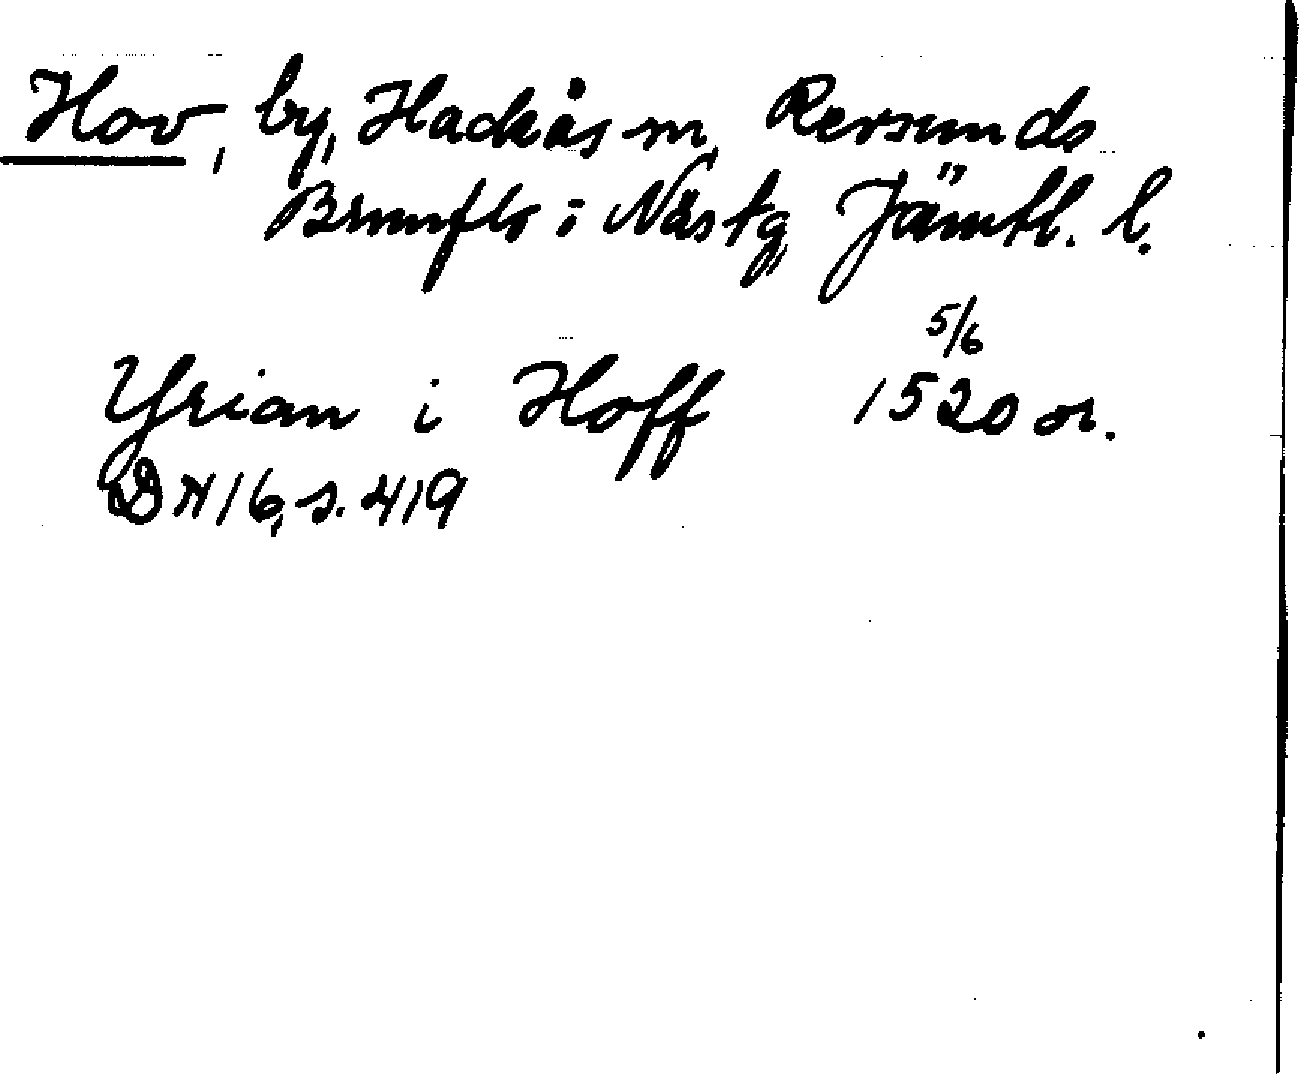 Hov, by, Hackås sn, Revsunds
Brunflo i Näs tg, Jämtl. l.
5/6
Yrian i Hoff 1520 or.
DN 16, s. 419